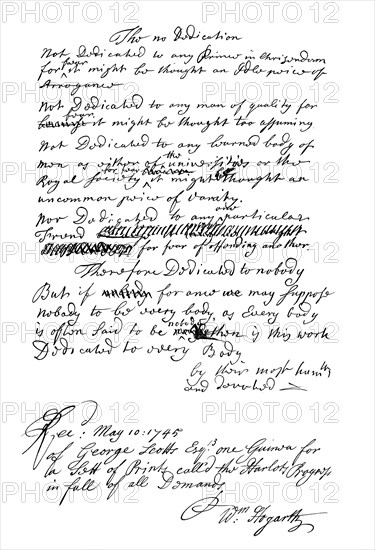 The no Dedication
Not Dedicated to any Prince in Christendom
for fear it might be thought an Idle peice of
Arrogance
Not Dedicated to any man of quality for
fear it might be thought too assuming
Not Dedicated to any learned body of
men as either of the universities or the
Royal Society for fear it might be thought an
uncommon peice of Vanity.
Nor Dedicated to any particular
Friend for fear of offending another.
Therefore Dedicated to nobody
But if for once we may suppose
nobody to be every body, as Every body
is often said to be nobody then is this work
Dedicated to every Body
by their most humble
and devoted
Rec'd: May 10: 1745
of George Scotts Esqr. one Guinea for
a Sett of Prints call'd the Harlots Progress
in full of all Demands
Wm Hogarth
PHOTO 12